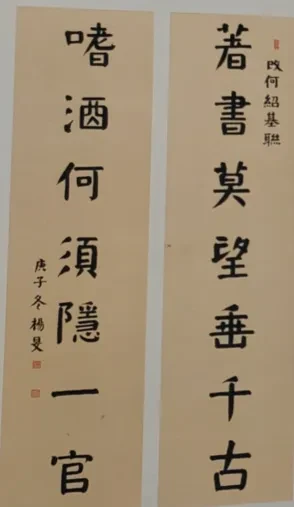 著書莫望垂千古
改何紹基聯
嗜酒何須隱一官
庚子冬楊旻